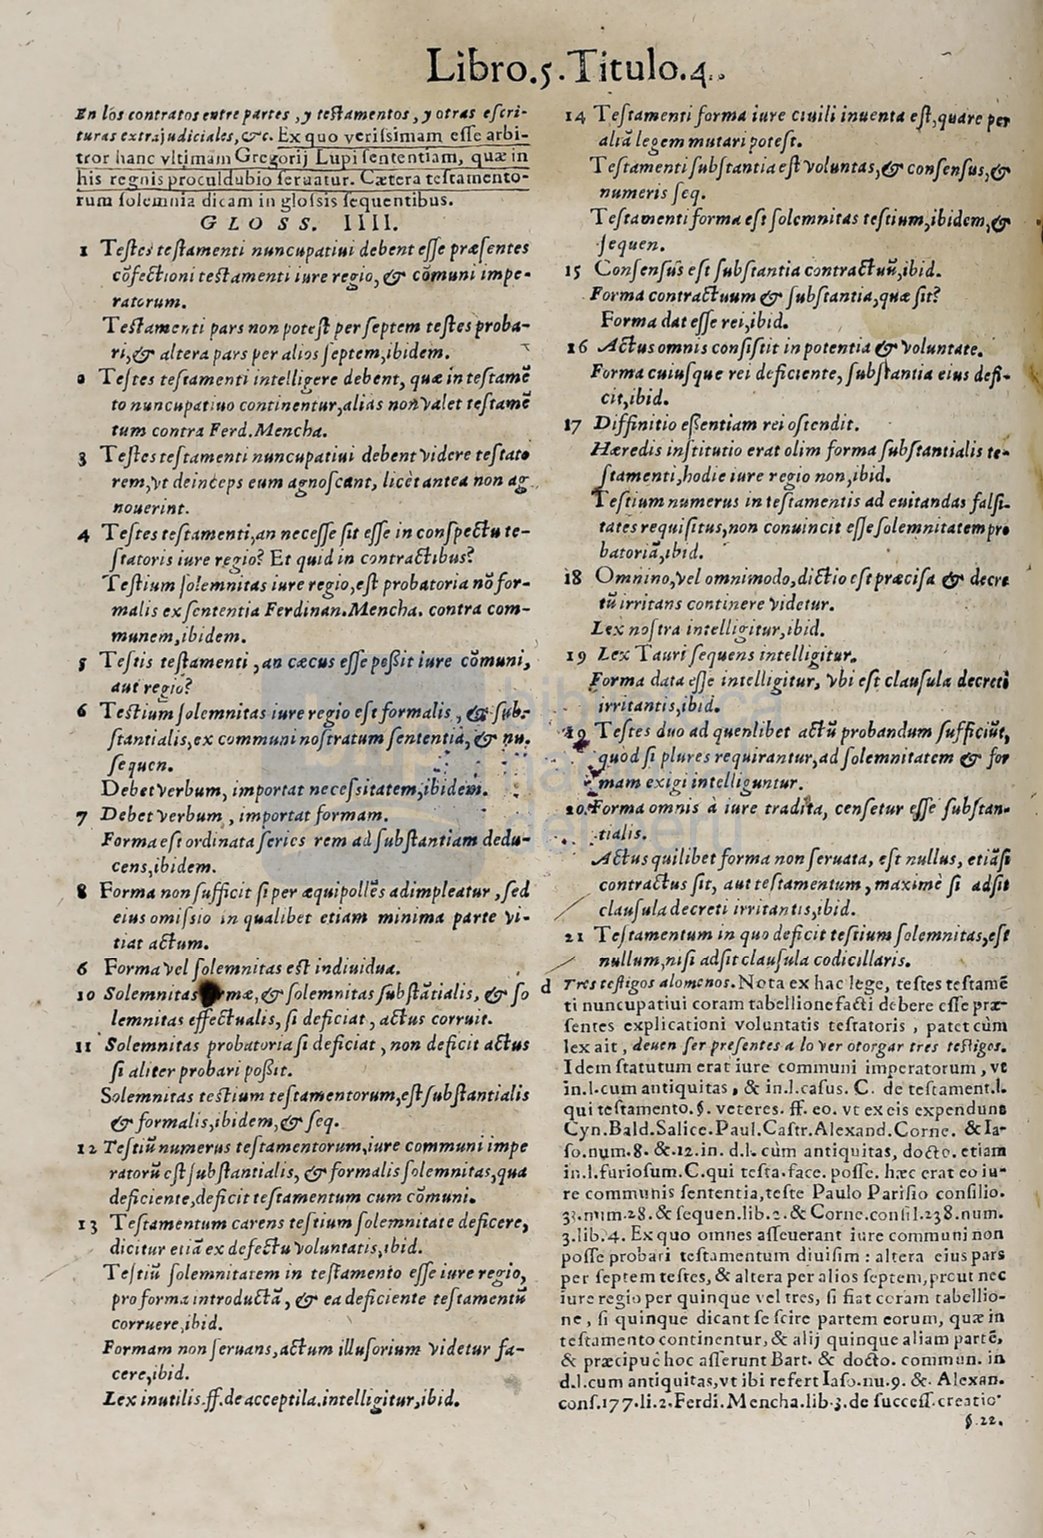 Libro.5.Titulo.4.
En los contratos entre partes, y testamentos, y otras escri-
turas extrajudiciales,&c. Ex quo verissimam esse arbi-
tror hanc vltimam Gregorij Lupi sententiam, quæ in
his regnis proculdubio seruatur. Cætera testamento-
rum solemnia dicam in glossis sequentibus.
GLOSS. IIII.
1 Testes testamenti nuncupatiui debent esse præsentes
cōfectioni testamenti iure regio, & cōmuni impe-
ratorum.
Testamenti pars non potest per septem testes proba-
ri,& altera pars per alios septem,ibidem.
2 Testes testamenti intelligere debent, quæ in testamē
to nuncupatiuo continentur,aliàs non valet testamē
tum contra Ferd.Mencha.
3 Testes testamenti nuncupatiui debent videre testato
rem,vt deinceps eum agnoscant, licèt antea non ag
nouerint.
4 Testes testamenti,an necesse sit esse in conspectu te-
statoris iure regio? Et quid in contractibus?
Testium solemnitas iure regio,est probatoria nō for-
malis ex sententia Ferdinan.Mencha. contra com-
munem,ibidem.
5 Testis testamenti ,an cæcus esse possit iure cōmuni,
aut regio?
6 Testium solemnitas iure regio est formalis , & sub-
stantialis,ex communi nostratum sententia, & nu.
sequen.
Debet verbum, importat necessitatem,ibidem.
7 Debet verbum , importat formam.
Forma est ordinata series rem ad substantiam dedu-
cens,ibidem.
8 Forma non sufficit si per æquipollēs adimpleatur ,sed
eius omissio in qualibet etiam minima parte vi-
tiat actum.
6 Forma vel solemnitas est indiuidua.
10 Solemnitas formæ,& solemnitas substātialis, & so
lemnitas effectualis, si deficiat , actus corruit.
11 Solemnitas probatoria si deficiat , non deficit actus
si aliter probari possit.
Solemnitas testium testamentorum,est substantialis
& formalis,ibidem,& seq.
12 Testiū numerus testamentorum,iure communi impe
ratorū est substantialis, & formalis solemnitas,qua
deficiente,deficit testamentum cum cōmuni.
13 Testamentum carens testium solemnitate deficere,
dicitur etiā ex defectu voluntatis,ibid.
Testiū solemnitatem in testamento esse iure regio,
pro forma introductā , & ea deficiente testamentū
corruere,ibid.
Formam non seruans,actum illusorium videtur fa-
cere,ibid.
Lex inutilis.ff.de acceptila.intelligitur,ibid.
14 Testamenti forma iure ciuili inuenta est,quare per
aliā legem mutari potest.
Testamenti substantia est voluntas,& consensus,&
numeris seq.
Testamenti forma est solemnitas testium,ibidem,&
sequen.
15 Consensus est substantia contractuū,ibid.
Forma contractuum & substantia,quæ sit?
Forma dat esse rei,ibid.
16 Actus omnis consistit in potentia & voluntate.
Forma cuiusque rei deficiente, substantia eius defi-
cit,ibid.
17 Diffinitio essentiam rei ostendit.
Hæredis institutio erat olim forma substantialis te-
stamenti,hodie iure regio non,ibid.
Testium numerus in testamentis ad euitandas falsi-
tates requisitus,non conuincit esse solemnitatem pro
batoriā,ibid.
18 Omnino,vel omnimodo,dictio est præcisa & decre
tū irritans continere videtur.
Lex nostra intelligitur,ibid.
19 Lex Tauri sequens intelligitur.
Forma data esse intelligitur, vbi est clausula decreti
irritantis,ibid.
19 Testes duo ad quenlibet actū probandum sufficiūt,
quòd si plures requirantur,ad solemnitatem & for
mam exigi intelliguntur.
20. Forma omnis à iure tradita, censetur esse substan-
tialis.
Actus quilibet forma non seruata, est nullus, etiāsi
contractus sit, aut testamentum , maximè si adsit
clausula decreti irritantis,ibid.
21 Testamentum in quo deficit testium solemnitas,est
nullum,nisi adsit clausula codicillaris.
d Tres testigos alomenos. Nota ex hac lege, testes testamē
ti nuncupatiui coram tabellione facti debere esse præ-
sentes explicationi voluntatis testatoris , patet cùm
lex ait , deuen ser presentes a lo ver otorgar tres testigos.
Idem statutum erat iure communi imperatorum , vt
in.l.cum antiquitas , & in.l.casus. C. de testament.l.
qui testamento.§. veteres. ff. eo. vt ex eis expendunt
Cyn.Bald.Salice.Paul.Castr.Alexand.Corne. & Ia-
so.num.8. &.12.in. d.l. cùm antiquitas, docto. etiam
in.l.furiosum.C.qui testa.face. posse. hæc erat eo iu-
re communis sententia,teste Paulo Parisio consilio.
33.num.28.& sequen.lib.2.& Corne.consil.238.num.
3.lib.4. Ex quo omnes asseuerant iure communi non
posse probari testamentum diuisim : altera eius pars
per septem testes, & altera per alios septem,prout nec
iure regio per quinque vel tres, si fiat coram tabellio-
ne , si quinque dicant se scire partem eorum, quæ in
testamento continentur, & alij quinque aliam partē,
& præcipuè hoc asserunt Bart. & docto. commun. in
d.l.cum antiquitas,vt ibi refert Iaso.nu.9. &. Alexan.
cons.177.li.2.Ferdi.Mencha.lib.3.de success.creatio
§.22.